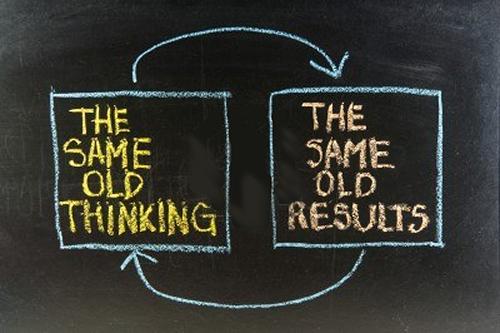 THE
SAME
OLD
THINKING
THE
SAME
OLD
RESULTS